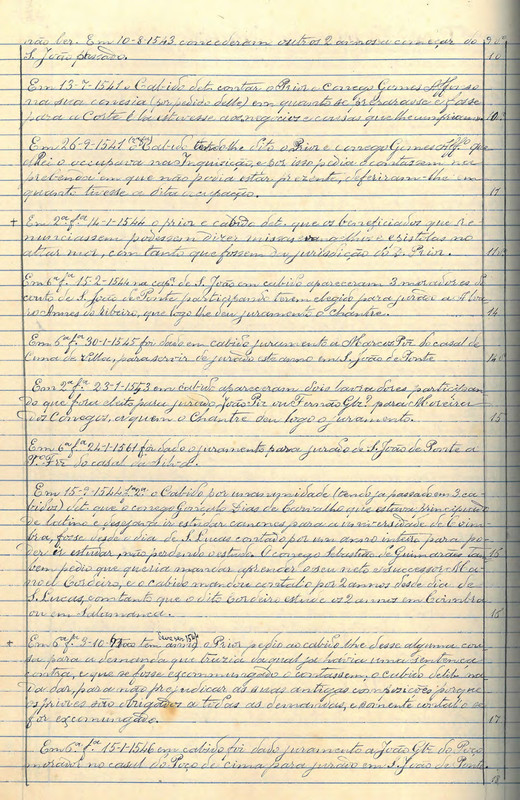 rão ler. Em 10-8-1543 concederam outros 2 annos a começar do 9 vº
S. João passado. 10
Em 13-7-1541 o Cabido det. contar o Prior e conego Gomes Affonso
na sua conesia (por pedido delle) em quanto se preparasse e fosse
para a Corte e lá estivesse a negocios e cousas que lhe cumpriam 10 vº
Em 26-9-1541 Cabido o Prior e conego Gomes Affº que
elRei o occupava na Inquisição, e por isso pedia o contassem na
prebenda em que não podia estar prezente, deferiram-lhe em
quanto tivesse a dita occupação. 11
+ Em 2ª fª 14-1-1544 o prior e cabido det. que os beneficiados que re-
nunciassem podessem dizer missas e evangelhos e epistolas no
altar mor, com tanto que fossem da jurisdição do D. Prior. 11 vº
Em 6ª fª 15-2-1544 na capª de S. João em cabido apareceram 3 moradores do
couto de S. João de Ponte participando terem elegido para jurado a Alva-
ro Annes do Ribeiro, que logo lhe deu juramento o Chantre. 14
Em 6ª fª 30-1-1545 foi dado em cabido juramento a Marcos Piz do casal de
Cima de Villa, para servir de jurado este anno em S. João de Ponte 14 vº
Em 2ª fª 23-1-1543 em cabido apareceram dois lavradores participan-
do que fora eleito para jurado João Piz ou Fernão Glz? para Moreira
dos Conegos, a quem o Chantre deu logo o juramento. 15
Em 6ª fª 24-1-1561 foi dado o juramento para jurado de S. João de Ponte a
Frz do casal da
Em 15-9-1544 o Cabido por unanimidade (tendo já passado em 3 ca-
bidos) det. que o conego Gonçalo Dias de Carvalho que estava principiado
de latino e desejava ir estudar canones para a universidade de Coim-
bra, fosse desde o dia de S. Lucas contado por um anno inteiro para po-
der ir estudar não perdendo o estudo. O conego Sebastião de Guimarães tam- 15
bem pedio que queria mandar aprender o seu neto e successor Ma-
noel Cordeiro, e o cabido mandou contal-o por 2 annos desde dia de
S. Lucas, com tanto que o dito Cordeiro estude os 2 annos em Coimbra
ou em Salamanca. 15
+ Em 6ª fª 3-10 (não tem anno) o Prior pedio ao cabido lhe desse alguma cou-
sa para a demanda que trazia da qual já havia uma sentença
contra, e que se fosse excommungado o contassem, o cabido det. lhe na-
da dar, para não prejudicar as suas antigas composições porque
os priores são obrigados a todas as demandas, e somente contal-o se
for excomungado. 17
Em 6ª fª 15-1-1546 em cabido foi dado juramento a João Glz do Poço
morador no casal do Poço de cima para jurado em S. João de Ponte.
18